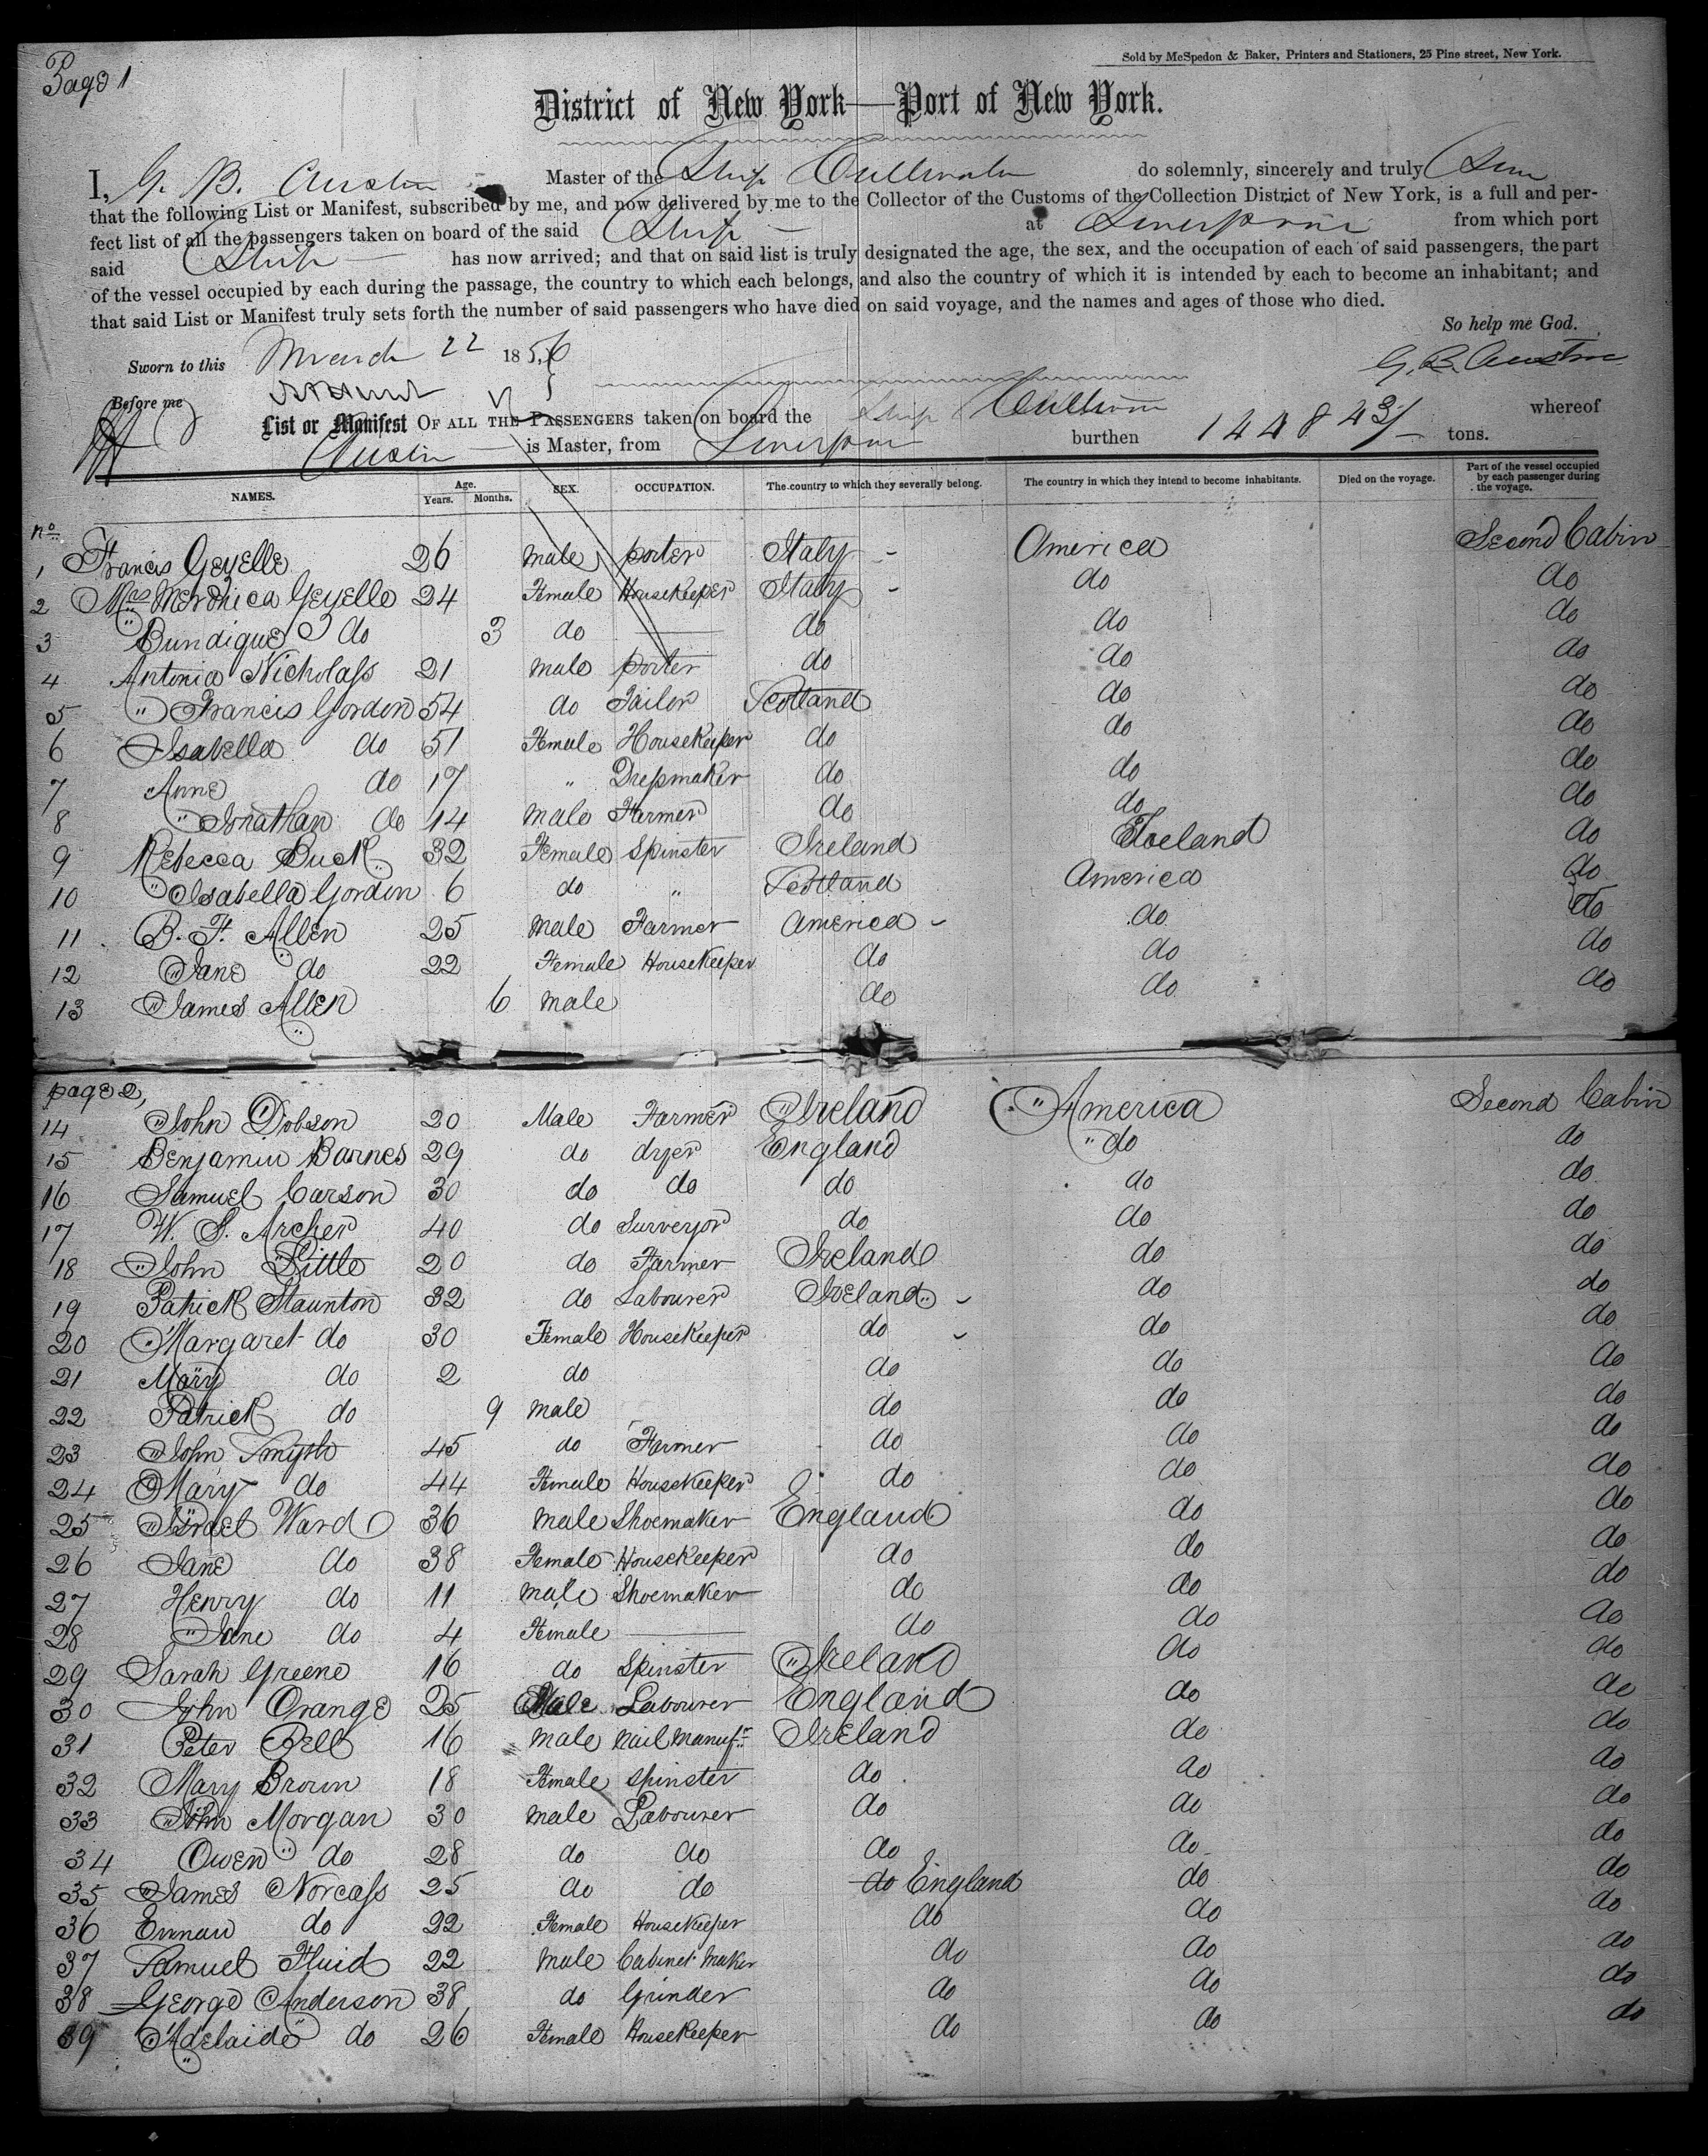 Page 1
Sold by McSpedon & Baker, Printers and Stationers, 25 Pine street, New York.
District of New York—Port of New York.
I, G. B. Austin Master of the Ship do solemnly, sincerely and truly
that the following List or Manifest, subscribed by me, and now delivered by me to the Collector of the Customs of the Collection District of New York, is a full and per-
fect list of all the passengers taken on board of the said Ship at Liverpool from which port
said Ship has now arrived; and that on said list is truly designated the age, the sex, and the occupation of each of said passengers, the part
of the vessel occupied by each during the passage, the country to which each belongs, and also the country of which it is intended by each to become an inhabitant; and
that said List or Manifest truly sets forth the number of said passengers who have died on said voyage, and the names and ages of those who died.
So help me God.
Sworn to this March 22 1856
G. B. Austin
Before me
List or Manifest OF ALL THE PASSENGERS taken on board the Ship whereof
Austin is Master, from Liverpool burthen 1448 43/ tons.
NAMES. Age. Years. Months. SEX. OCCUPATION. The country to which they severally belong. The country in which they intend to become inhabitants. Died on the voyage. Part of the vessel occupied by each passenger during the voyage.
No
1 Francis Geyelle 26 male porter Italy - America Second Cabin
2 Mrs Meronica Geyelle 24 Female Housekeeper Italy - do do
3 Bundique do 3 do — do do do
4 Antonia Nicholass 21 male porter do do do
5 " Francis Gordon 54 do Tailor Scotland do do
6 Isabella do 51 Female Housekeeper do do do
7 Anne do 17 " Dressmaker do do do
8 " Jonathan do 14 male Farmer do do do
9 Rebecca Buck 32 Female Spinster Ireland do
10 " Isabella Gordon 6 do " Scotland America do
11 B. F. Allen 25 male Farmer America - do do
12 Jane do 22 Female Housekeeper do do do
13 James Allen 6 male do do do
page 2,
14 John Dobson 20 Male Farmer Ireland America Second Cabin
15 Benjamin Barnes 29 do dyer England " do do
16 Samuel Carson 30 do do do do do
17 W. S. Archer 40 do Surveyor do do do
18 John Little 20 do Farmer Ireland do do
19 Patrick Staunton 32 do Labourer Ireland - do do
20 Margaret do 30 Female Housekeeper do - do do
21 Mary do 2 do do do do
22 Patrick do 9 male do do do
23 John Smyth 45 do Farmer do do do
24 Mary do 44 Female Housekeeper do do do
25 Israel Ward 36 male Shoemaker England do do
26 Jane do 38 Female Housekeeper do do do
27 Henry do 11 male Shoemaker do do do
28 " Jane do 4 Female — do do do
29 Sarah Greene 16 do Spinster Ireland do do
30 John Orange 25 Male Labourer England do do
31 Peter Bell 16 male nail manufr Ireland do do
32 Mary Brown 18 Female spinster do do do
33 John Morgan 30 male Labourer do do do
34 Owen do 28 do do do do do
35 James Norcass 25 do do do England do do
36 do 22 Female Housekeeper do do do
37 Samuel Fluid 22 male Cabinet Maker do do do
38 George Anderson 38 do Grinder do do do
39 Adelaide do 26 Female Housekeeper do do do